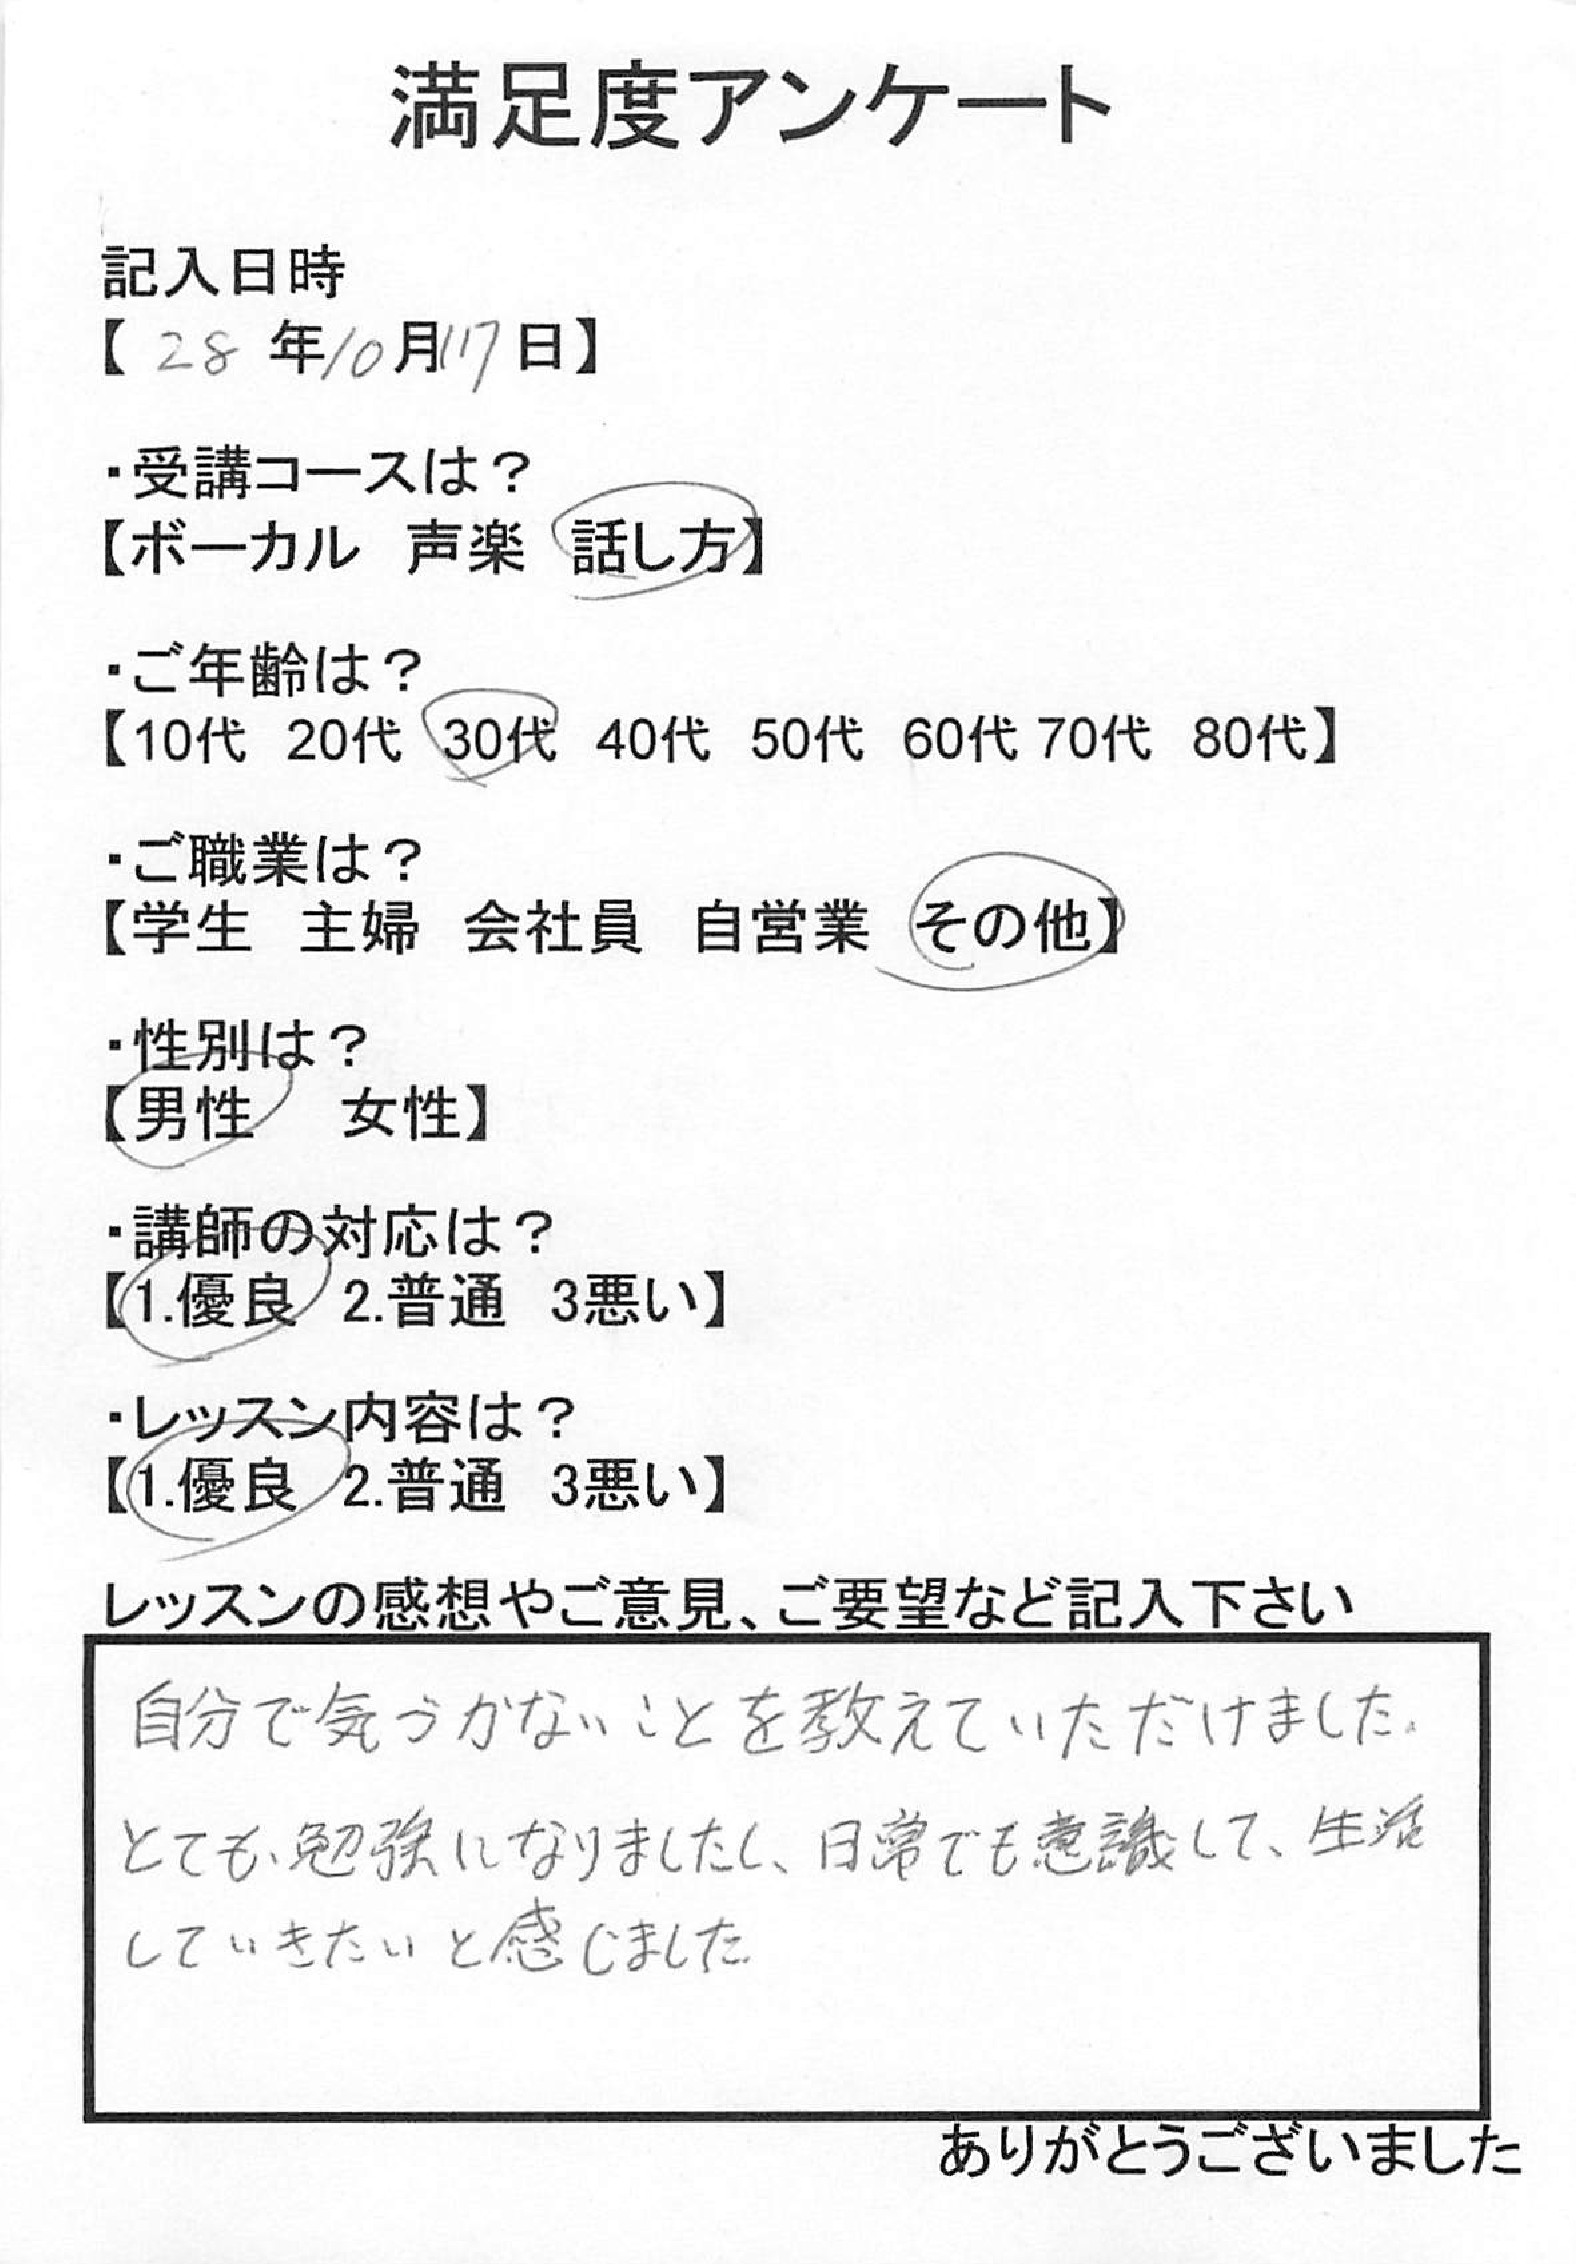 満足度アンケート
記入日時
【 28 年10月17日】
・受講コースは？
【ボーカル 声楽 話し方】
・ご年齢は？
【10代 20代 30代 40代 50代 60代 70代 80代】
・ご職業は？
【学生 主婦 会社員 自営業 その他】
・性別は？
【男性 女性】
・講師の対応は？
【1.優良 2.普通 3悪い】
・レッスン内容は？
【1.優良 2.普通 3悪い】
レッスンの感想やご意見、ご要望など記入下さい
自分で気づかないことを教えていただけました。
とても勉強になりましたし、日常でも意識して、生活
していきたいと感じました。
ありがとうございました